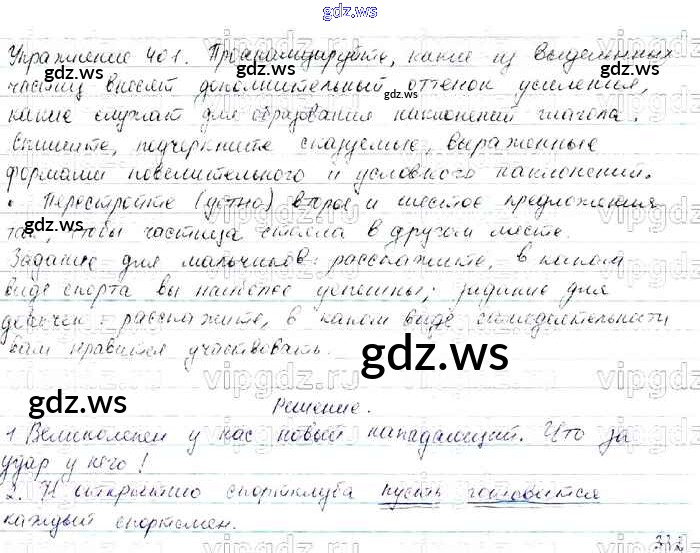 gdz.ws
Упражнение 401. Проанализируйте, какие из выделенных
частиц вносят дополнительный оттенок усиления,
какие служат для образования наклонений глагола.
Спишите, подчеркните сказуемые, выраженные
формами повелительного и условного наклонений.
• Перестройте (устно) второе и шестое предложения
так, чтобы частица стояла в другом месте.
Задание для мальчиков: расскажите, в каком
виде спорта вы наиболее успешны; задание для
девочек: расскажите, в каком виде самодеятельности
вам нравится участвовать.
gdz.ws
Решение.
1 Великолепен у нас новый нападающий. Что за
удар у него!
2. К открытию спортклуба пусть готовится
каждый спортсмен.